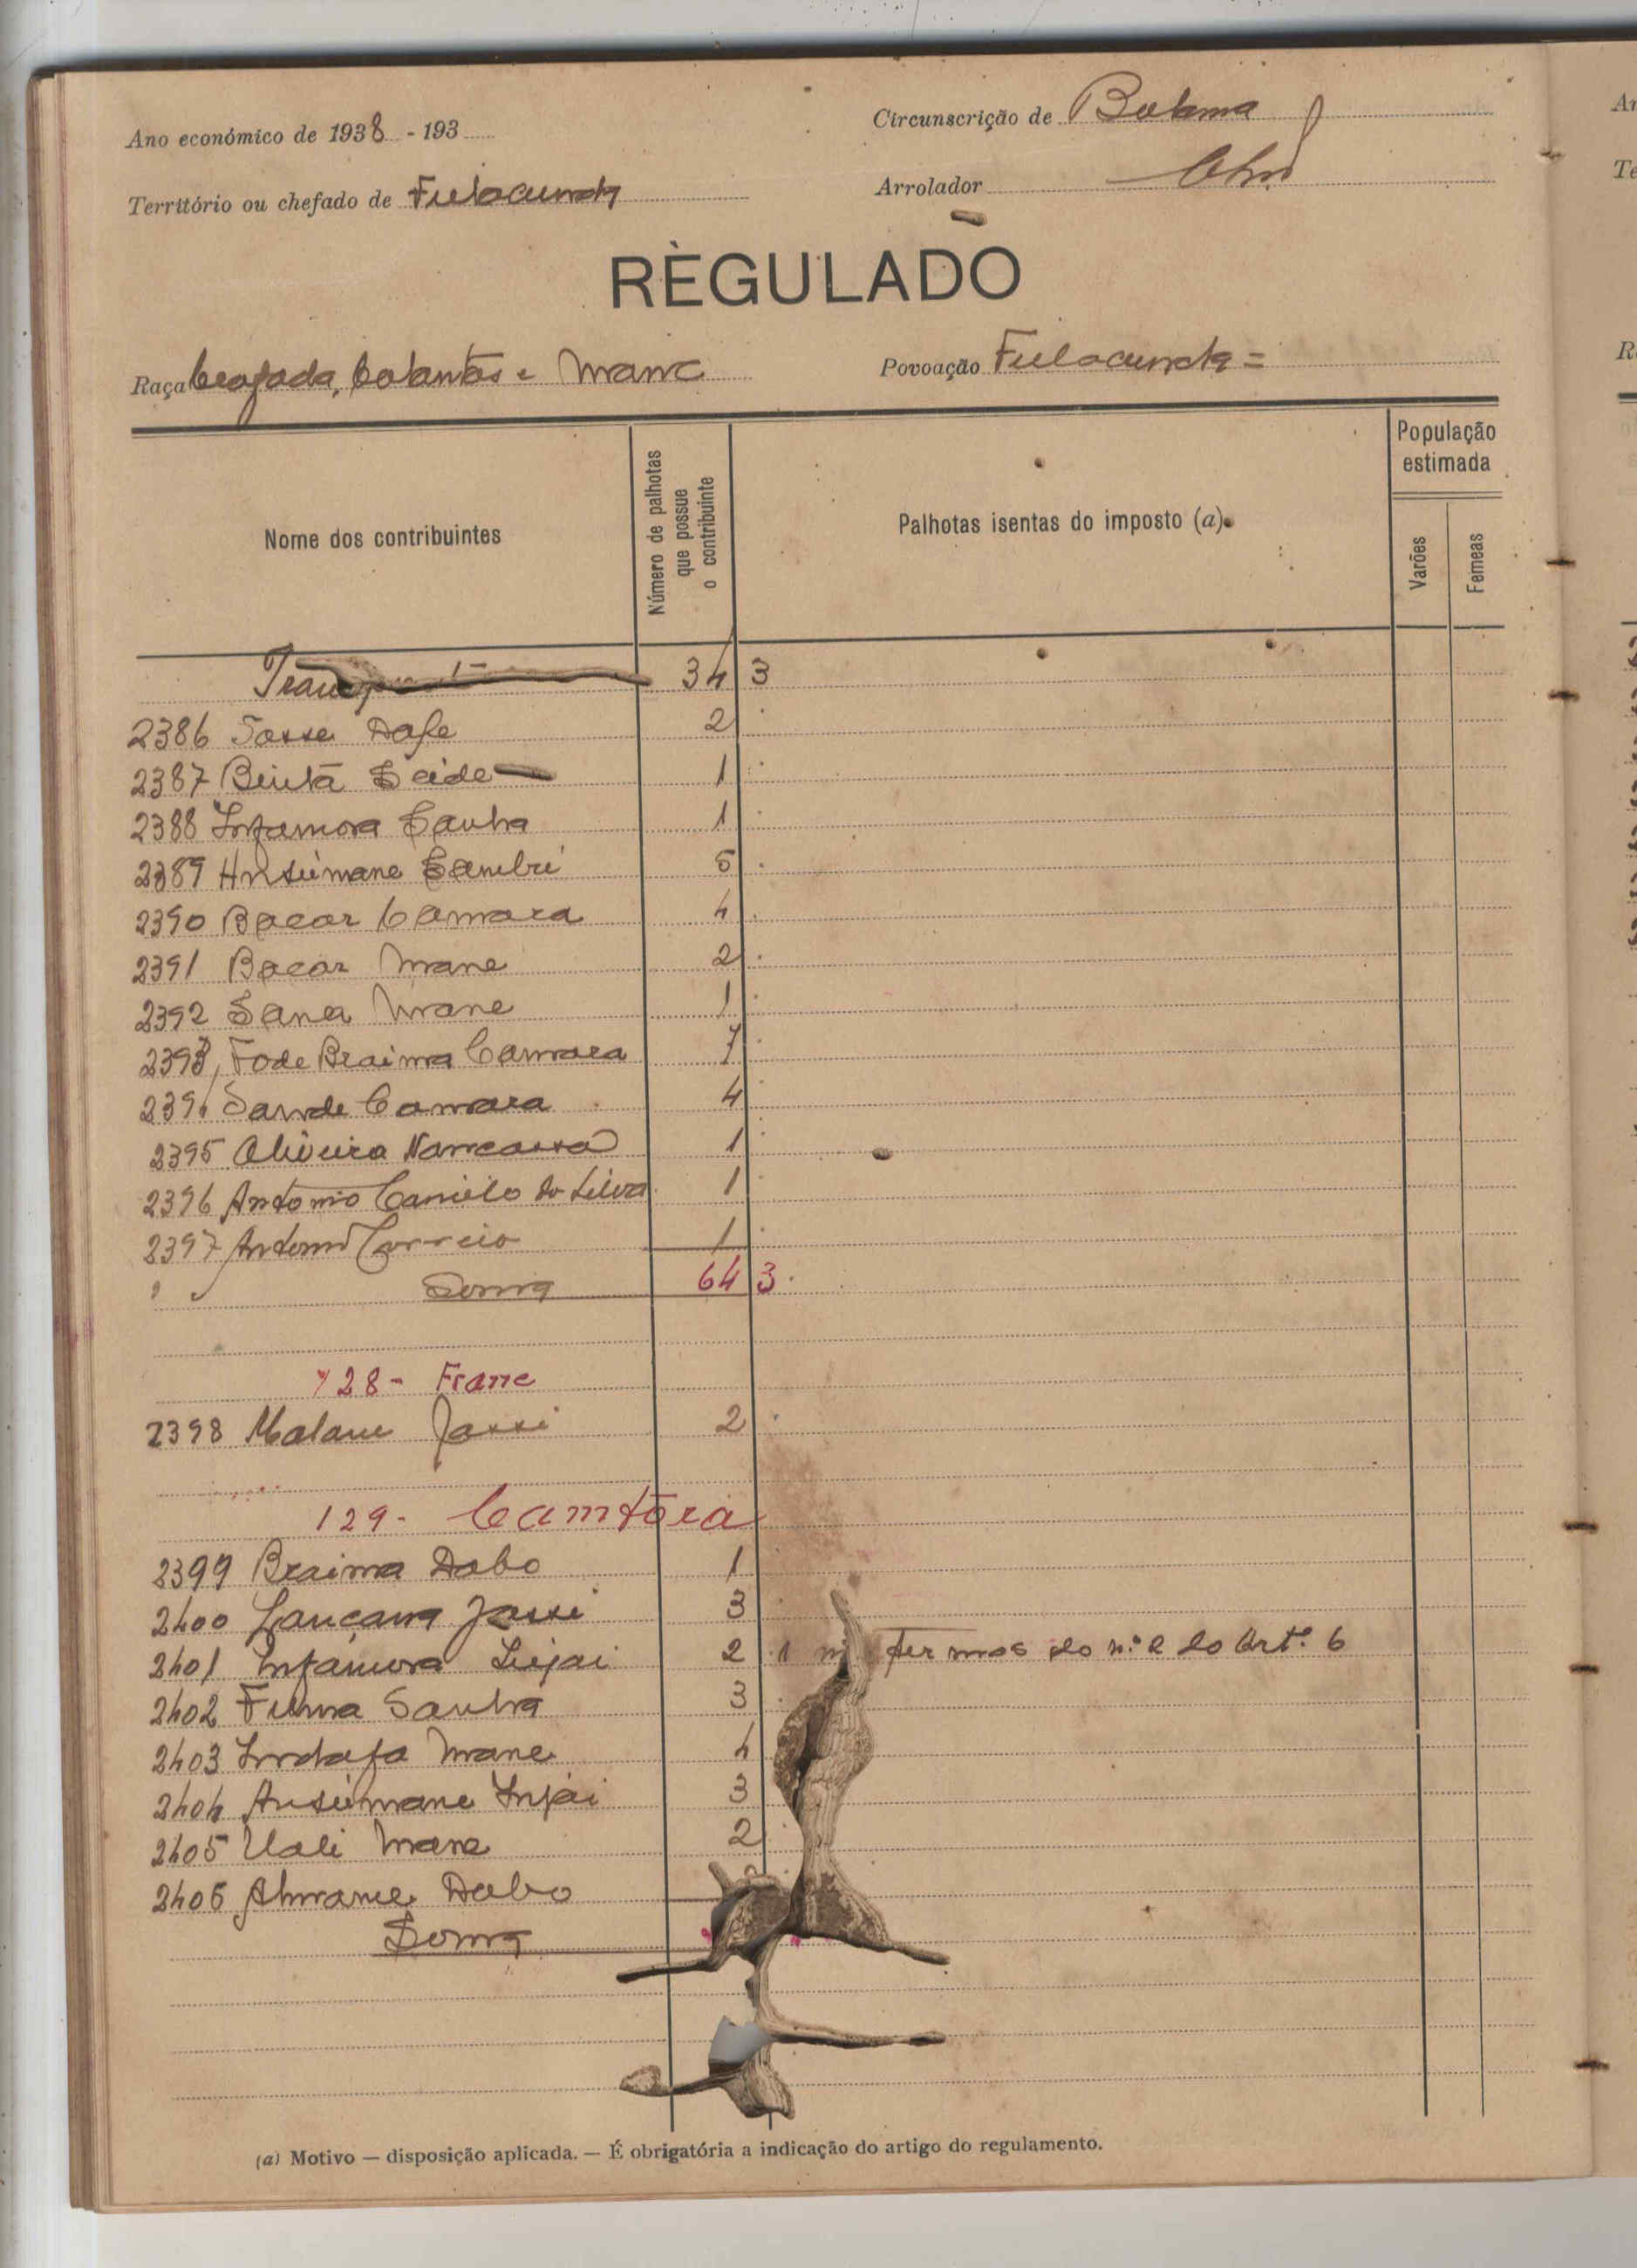 Ano económico de 1938 - 193
Circunscrição de Bolama
Território ou chefado de Fulacunda
Arrolador
REGULADO
Raça beafada, balantas e Mané
Povoação Fulacunda =
Nome dos contribuintes
Número de palhotas que possue o contribuinte
Palhotas isentas do imposto (a)
População estimada
Varões
Femeas
34 3
2386 Sosse Dafe 2
2387 Binta Seide 1
2388 Infamora Sanha 1
2389 Ansumane Sambú 5
2390 Bacar Camara 4
2391 Bacar Mane 2
2392 Sana Mane 1
2393 Fode Braima Camara 7
2394 Sande Camara 4
2395 Oliveira Nancassa 1
2396 Antonio Camilo da Silva 1
2397 Antonio Correia 1
Soma 64 3
128 - Frane
2398 Malam Jassi 2
129 - Camtora
2399 Braima Dabo 1
2400 Lançana Jassi 3
2401 Infamora Injai 2 1 termos do n.º 2 do Art.º 6
2402 Fuma Sanha 3
2403 Indafa Mane 4
2404 Ansumane Injai 3
2405 Uali Mane 2
2406 Dabo
Soma
(a) Motivo — disposição aplicada. — É obrigatória a indicação do artigo do regulamento.